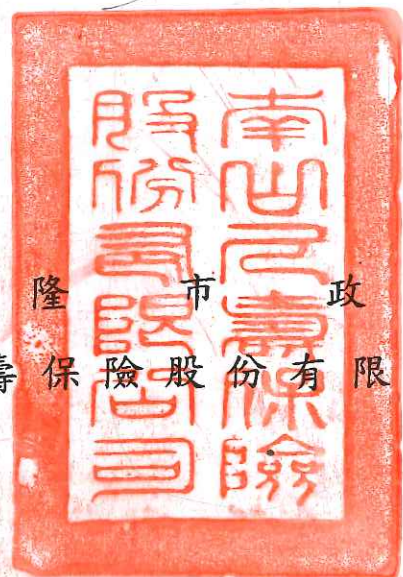 南山人壽保險
股份有限公司
隆市政
壽保險股份有限